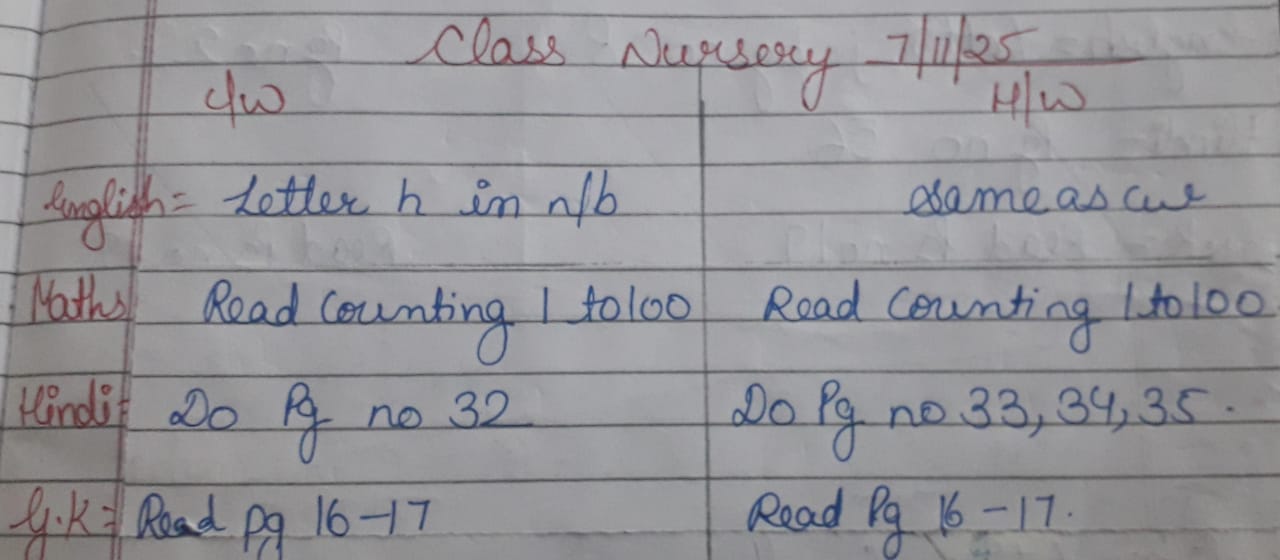 Class Nursery 7/11/25
C/W H/W
English = Letter h in n/b same as cw
Maths Read Counting 1 to 100 Read Counting 1 to 100
Hindi = Do Pg no 32 Do Pg no 33, 34, 35.
G.K = Read pg 16-17 Read Pg 16-17.